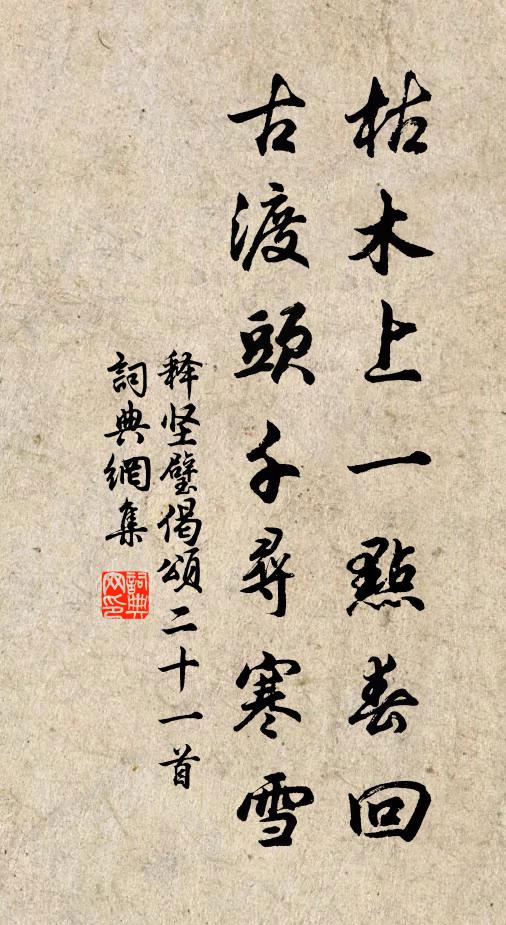 枯木上一點春回
古渡頭千尋寒雪
释坚璧偈頌二十一首
詞典網集
詞典
网印